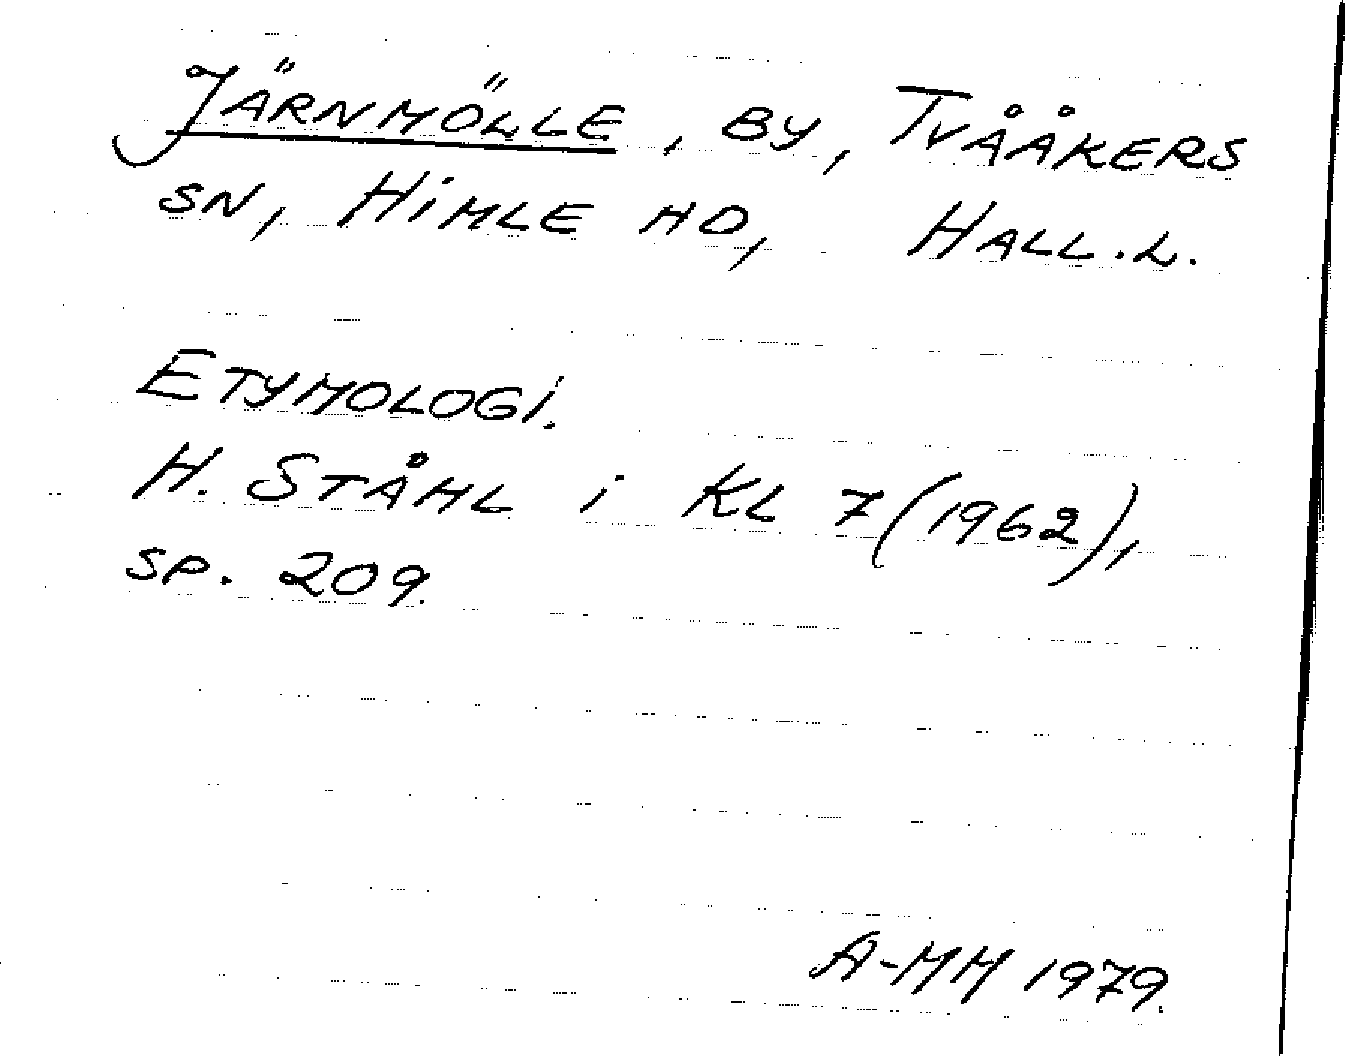 JÄRNMÖLLE, BY, TVÅÅKERS
SN, HIMLE HD, HALL.L.
ETYMOLOGI.
H. STÅHL i KL 7(1962),
SP. 209.
A-MM 1979.